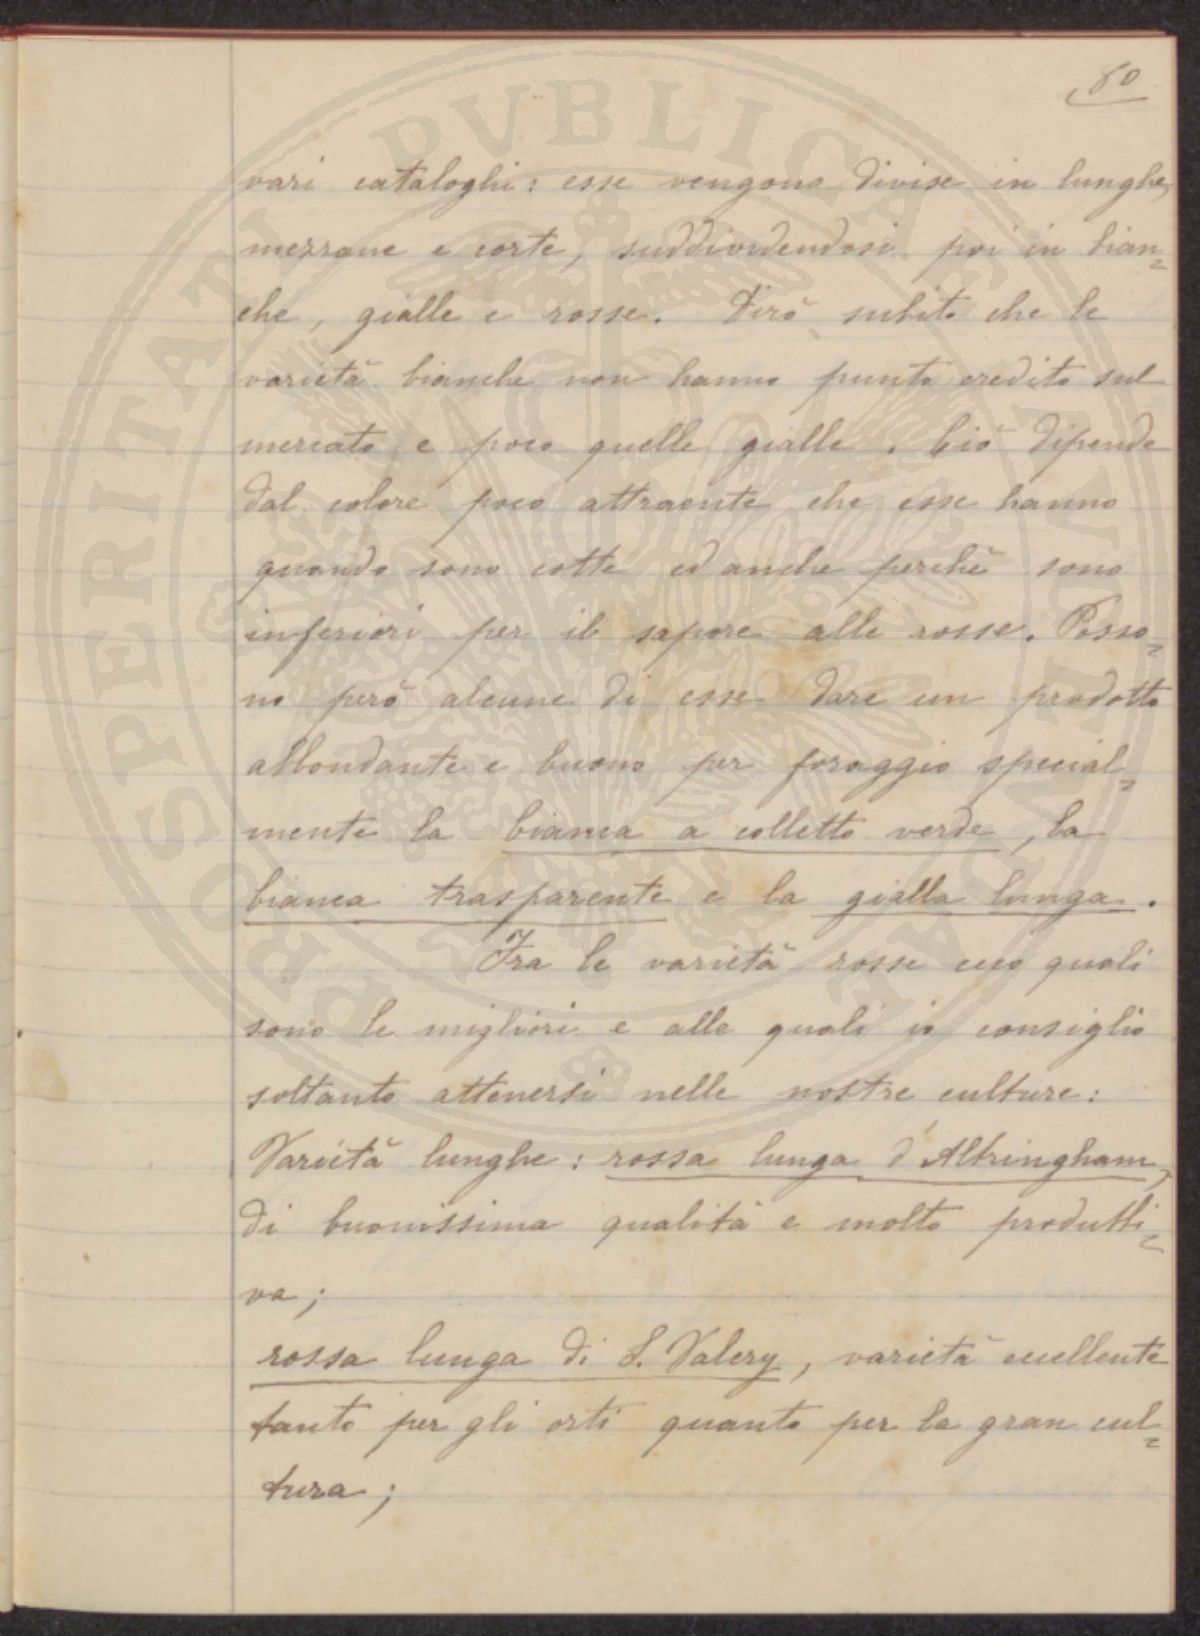 80
vari cataloghi: esse vengono divise in lunghe,
mezzane e corte, suddividendosi poi in bian=
che, gialle e rosse. Dirò subito che le
varietà bianche non hanno punto credito sul
mercato e poco quelle gialle. Ciò dipende
dal colore poco attraente che esse hanno
quando sono cotte ed anche perchè sono
inferiori per il sapore alle rosse. Posso=
no però alcune di esse dare un prodotto
abbondante e buono per foraggio special=
mente la bianca a colletto verde, la
bianca trasparente e la gialla lunga.
Fra le varietà rosse ecco quali
sono le migliori e alle quali io consiglio
soltanto attenersi nelle nostre culture:
Varietà lunghe: rossa lunga d'Altringham,
di buonissima qualità e molto produtti=
va;
rossa lunga di S. Valery, varietà eccellente
tanto per gli orti quanto per la gran cul=
tura;
PROSPERITATI PVBLICAE AVGENDAE